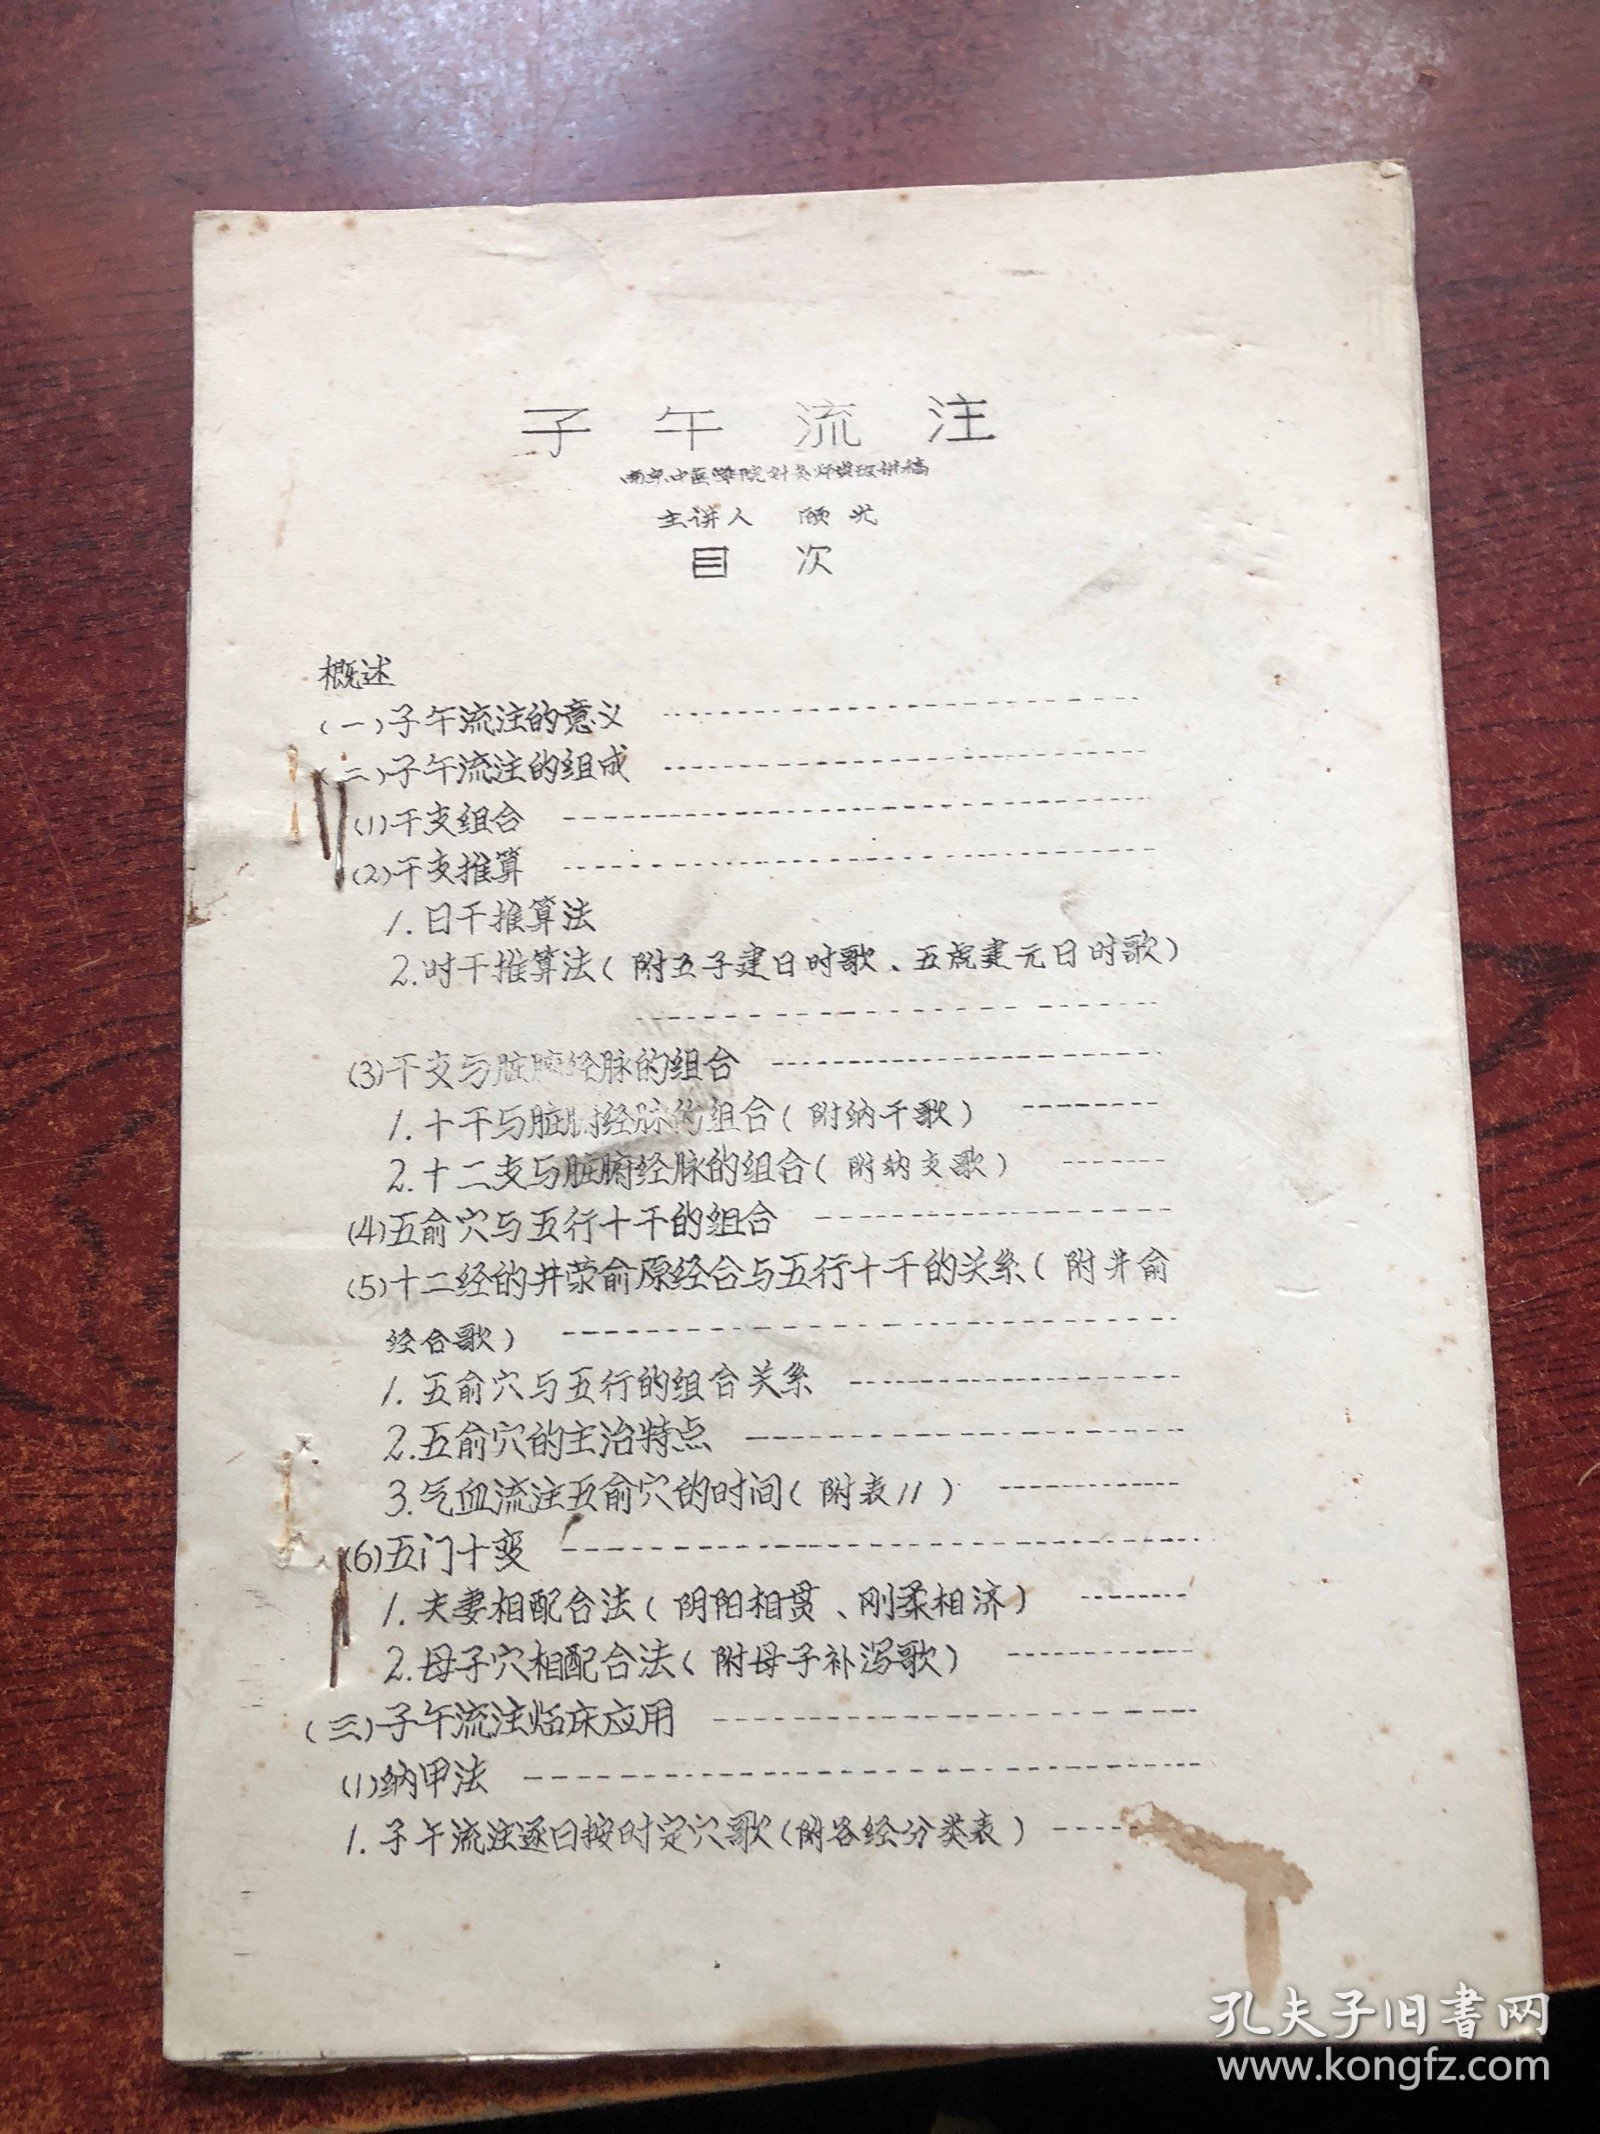 子午流注
南京中医学院针灸师资班讲稿
主讲人 顾光
目次
概述
(一)子午流注的意义
(二)子午流注的组成
(1)干支组合
(2)干支推算
1.日干推算法
2.时干推算法(附五子建日时歌、五虎建元日时歌)
(3)干支与脏腑经脉的组合
1.十干与脏腑经脉的组合(附纳干歌)
2.十二支与脏腑经脉的组合(附纳支歌)
(4)五俞穴与五行十干的组合
(5)十二经的井荥俞原经合与五行十干的关系(附井俞
经合歌)
1.五俞穴与五行的组合关系
2.五俞穴的主治特点
3.气血流注五俞穴的时间(附表11)
(6)五门十变
1.夫妻相配合法(阴阳相贯、刚柔相济)
2.母子穴相配合法(附母子补泻歌)
(三)子午流注临床应用
(1)纳甲法
1.子午流注逐日按时定穴歌(附各经分类表)
孔夫子旧书网
www.kongfz.com